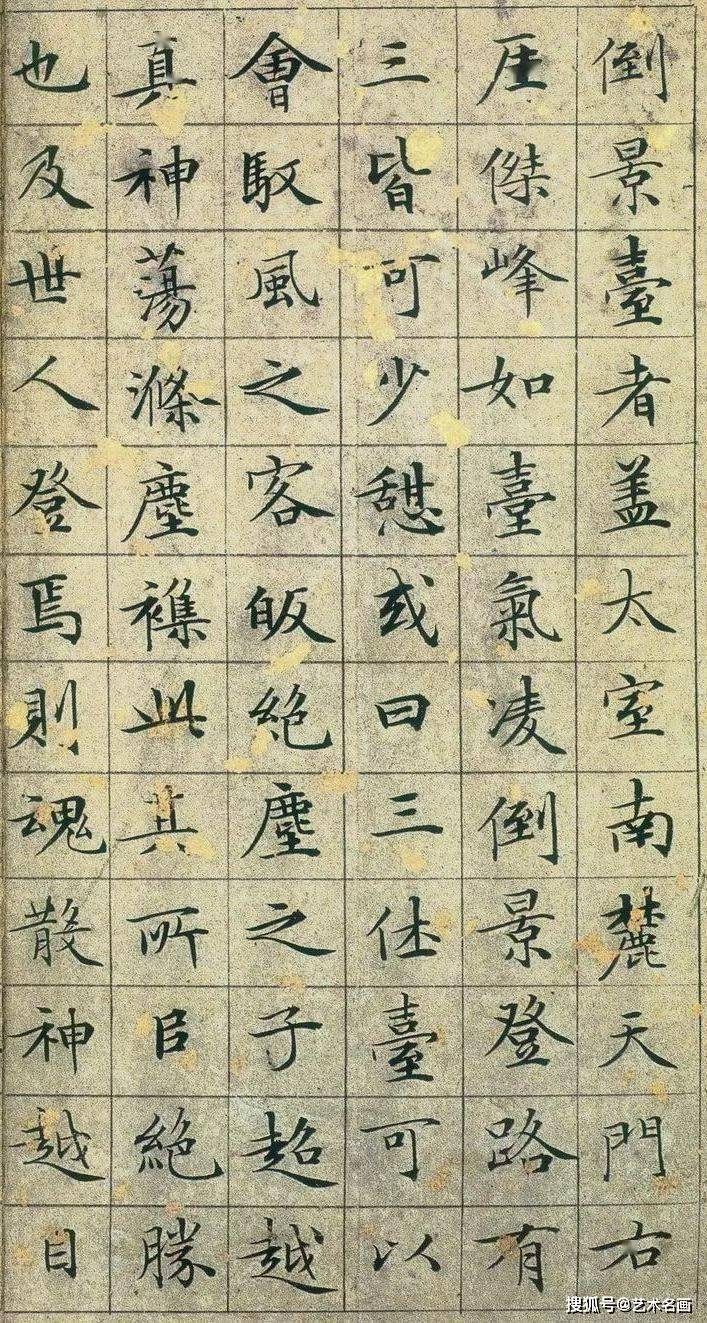 倒景臺者盖太室南麓天門右
厓傑峰如臺氣凌倒景登路有
三皆可少憩或曰三休臺可以
會馭風之客皈絕塵之子超越
真神蕩滌塵襍此其所㠯絕勝
也及世人登焉則魂散神越目
搜狐号@艺术名画